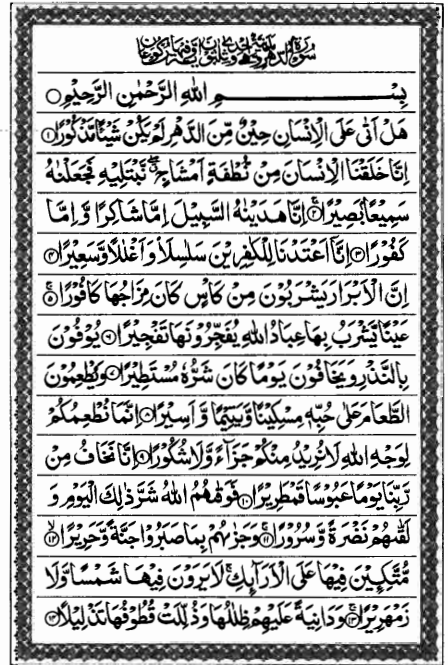 سُوْرَةُ الدَّهْرِ مَدَنِيَّةٌ وَّهِيَ اِحْدٰى وَثَلٰثُوْنَ اٰيَةً وَّفِيْهَا رُكُوْعَانِ
بِسْمِ اللهِ الرَّحْمٰنِ الرَّحِيْمِ ○
هَلْ اَتٰى عَلَى الْاِنْسَانِ حِيْنٌ مِّنَ الدَّهْرِ لَمْ يَكُنْ شَيْـًٔا مَّذْكُوْرًا ۝۱
اِنَّا خَلَقْنَا الْاِنْسَانَ مِنْ نُّطْفَةٍ اَمْشَاجٍ ۖ نَّبْتَلِيْهِ فَجَعَلْنٰهُ
سَمِيْعًۢا بَصِيْرًا ۝۲ اِنَّا هَدَيْنٰهُ السَّبِيْلَ اِمَّا شَاكِرًا وَّاِمَّا
كَفُوْرًا ۝۳ اِنَّآ اَعْتَدْنَا لِلْكٰفِرِيْنَ سَلٰسِلَا۟ وَاَغْلٰلًا وَّسَعِيْرًا ۝۴
اِنَّ الْاَبْرَارَ يَشْرَبُوْنَ مِنْ كَاْسٍ كَانَ مِزَاجُهَا كَافُوْرًا ۝۵
عَيْنًا يَّشْرَبُ بِهَا عِبَادُ اللهِ يُفَجِّرُوْنَهَا تَفْجِيْرًا ۝۶ يُوْفُوْنَ
بِالنَّذْرِ وَيَخَافُوْنَ يَوْمًا كَانَ شَرُّهٗ مُسْتَطِيْرًا ۝۷ وَيُطْعِمُوْنَ
الطَّعَامَ عَلٰى حُبِّهٖ مِسْكِيْنًا وَّيَتِيْمًا وَّاَسِيْرًا ۝۸ اِنَّمَا نُطْعِمُكُمْ
لِوَجْهِ اللهِ لَا نُرِيْدُ مِنْكُمْ جَزَآءً وَّلَا شُكُوْرًا ۝۹ اِنَّا نَخَافُ مِنْ
رَّبِّنَا يَوْمًا عَبُوْسًا قَمْطَرِيْرًا ۝۱۰ فَوَقٰىهُمُ اللهُ شَرَّ ذٰلِكَ الْيَوْمِ وَ
لَقّٰىهُمْ نَضْرَةً وَّسُرُوْرًا ۝۱۱ وَجَزٰىهُمْ بِمَا صَبَرُوْا جَنَّةً وَّحَرِيْرًا ۝۱۲
مُّتَّكِـِٕيْنَ فِيْهَا عَلَى الْاَرَآىِٕكِ ۚ لَا يَرَوْنَ فِيْهَا شَمْسًا وَّلَا
زَمْهَرِيْرًا ۝۱۳ وَدَانِيَةً عَلَيْهِمْ ظِلٰلُهَا وَذُلِّلَتْ قُطُوْفُهَا تَذْلِيْلًا ۝۱۴